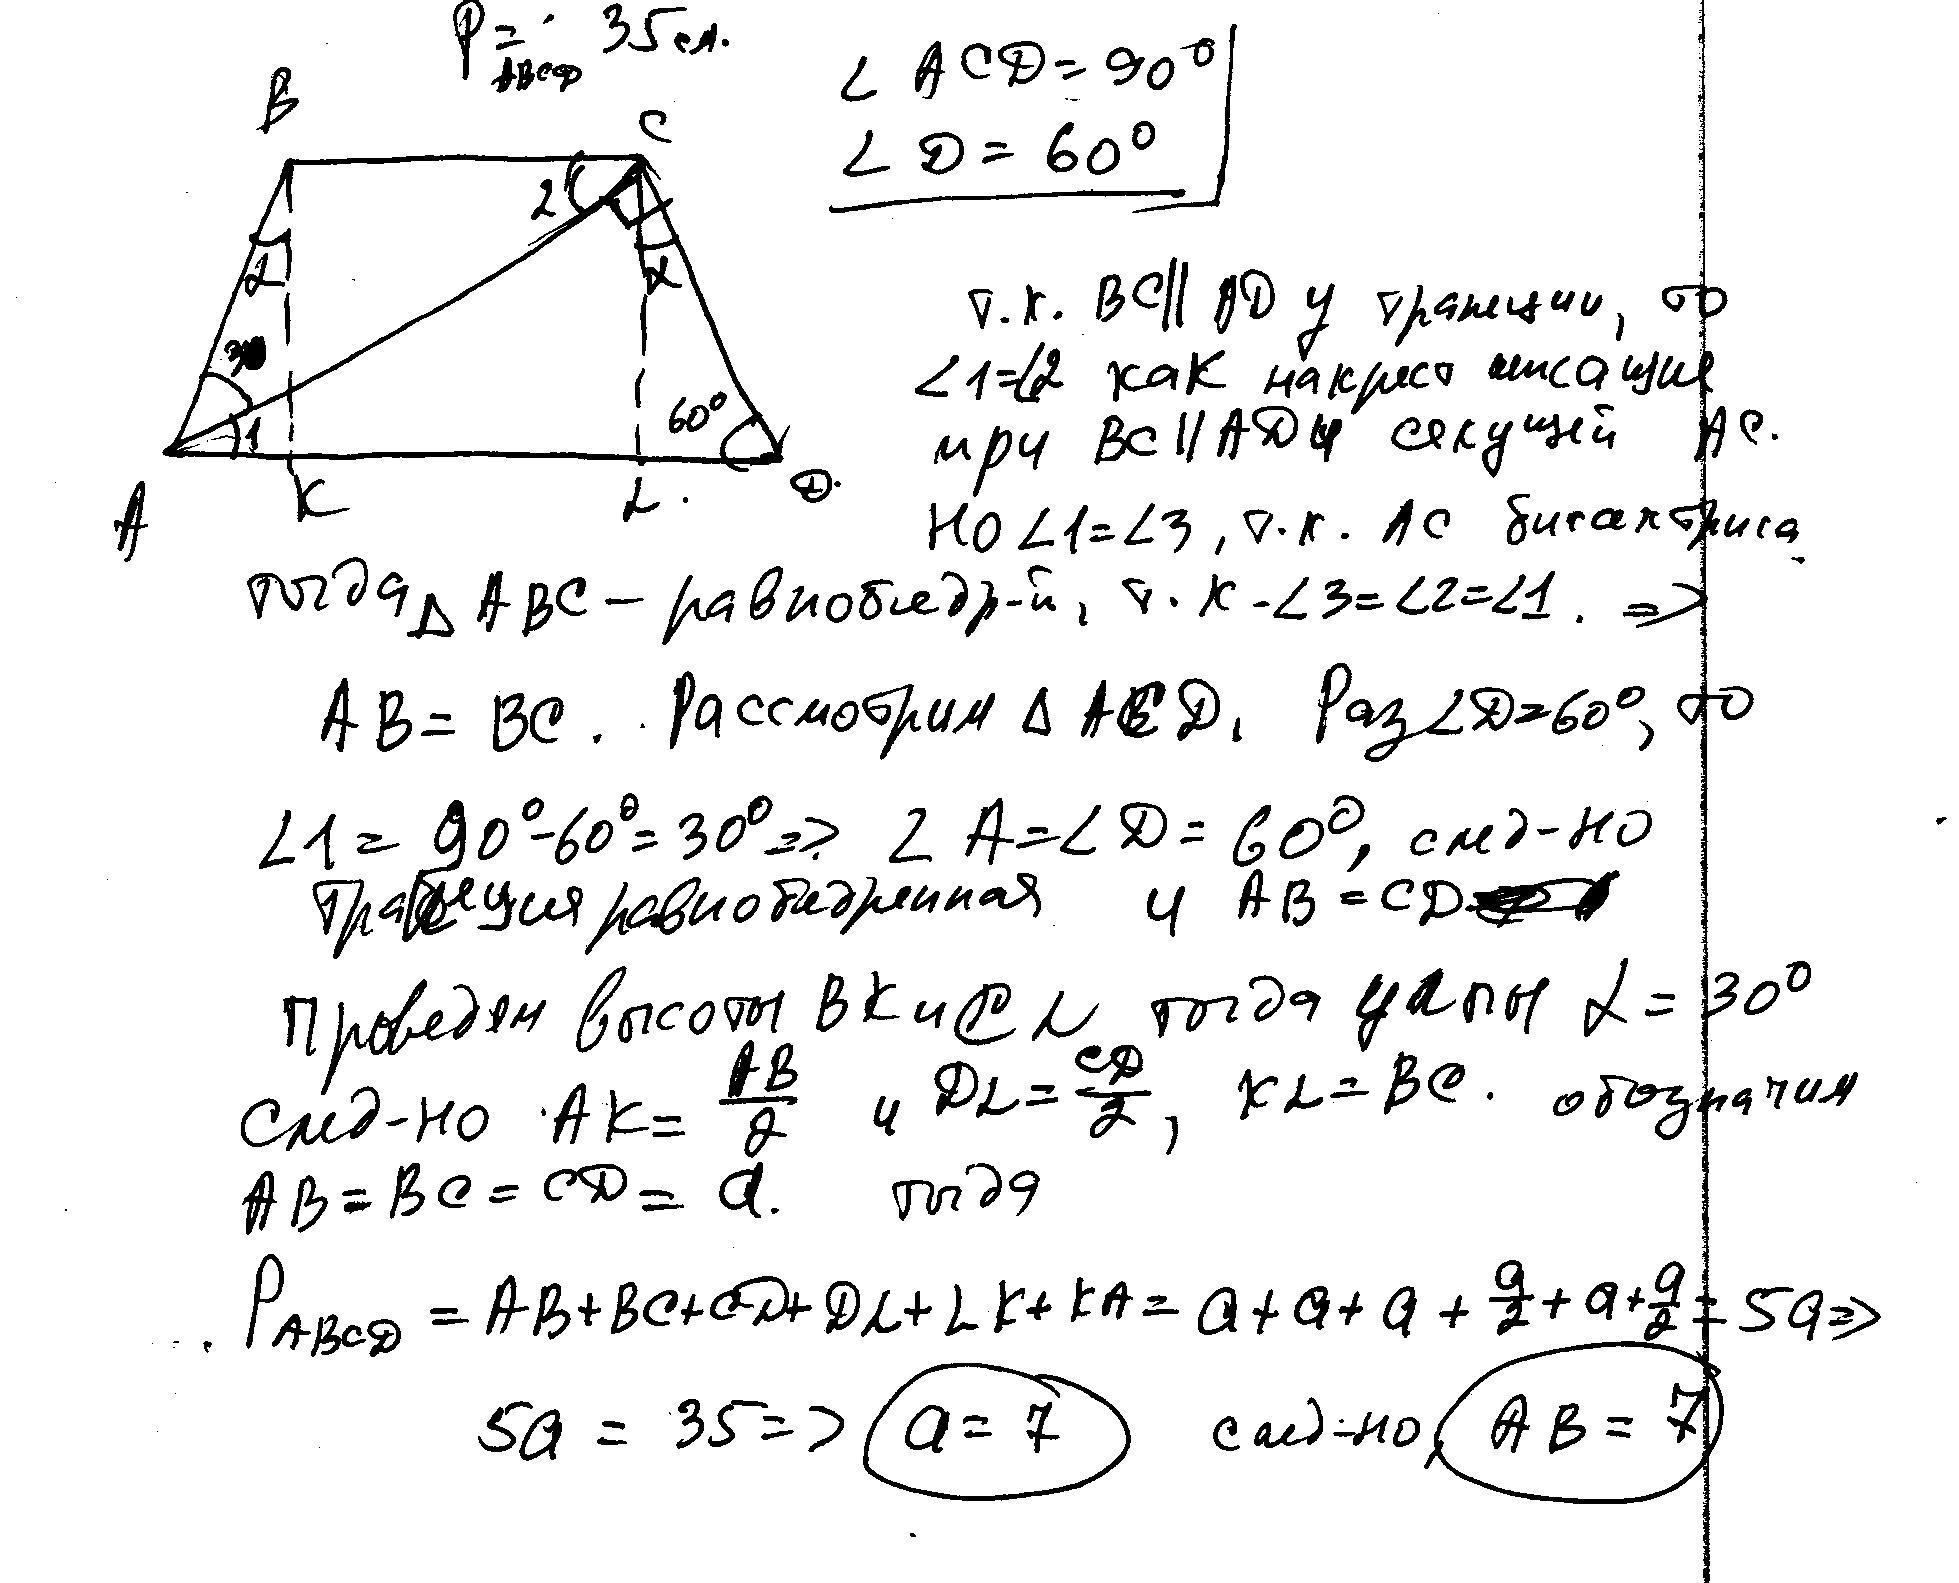 P ABCD = 35 см.
∠ ACD = 90°
∠ D = 60°
B
C
2
α
α
3
1
60°
A
K
L.
D.
т.к. BC || AD у трапеции, то
∠1=∠2 как накрест лежащие
при BC || AD и секущей AC.
НО ∠1=∠3, т.к. AC биссектриса
тогда Δ ABC – равнобедр-й, т.к - ∠3=∠2=∠1. =>
AB = BC. Рассмотрим Δ ACD. Раз ∠D=60°, то
∠1 = 90°-60°=30° => ∠ A=∠ D= 60°, след-но
трапеция равнобедренная и AB = CD
Проведем высоты BK и CL тогда углы α = 30°
след-но AK = AB/2 и DL = CD/2, KL = BC. обозначим
AB = BC = CD = a. тогда
P ABCD = AB+BC+CD+DL+LK+KA = a+a+a+a/2+a+a/2 = 5a =>
5a = 35 => a = 7 след-но, AB = 7